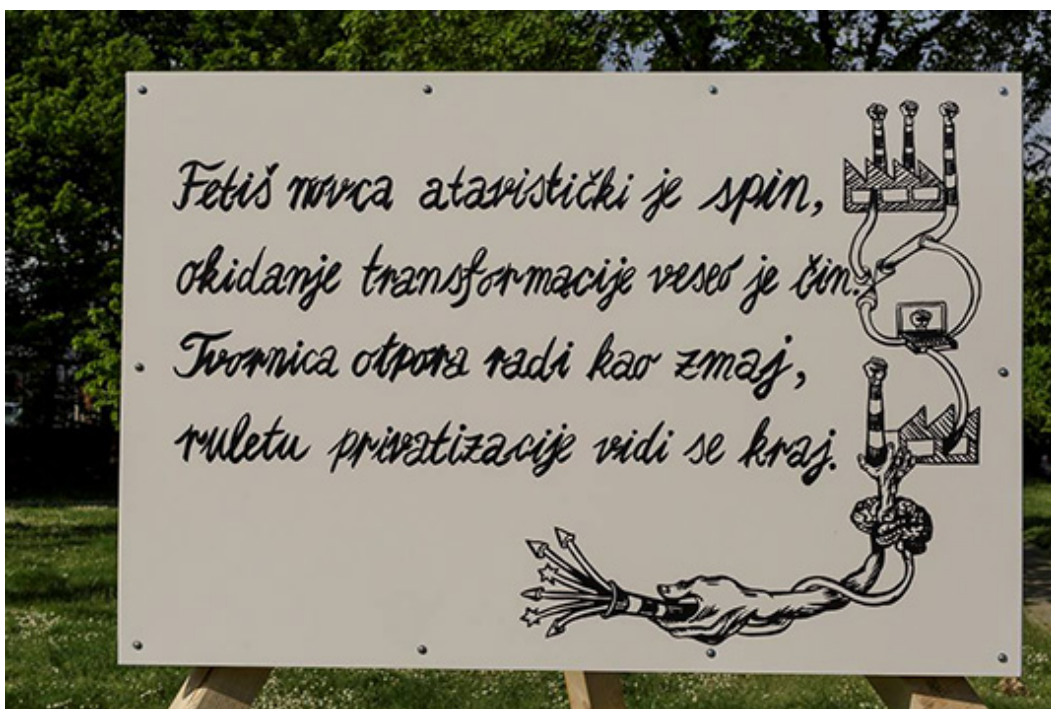 Fetiš novca atavistički je spin,
okidanje transformacije veseo je čin.
Tvornica otpora radi kao zmaj,
ruletu privatizacije vidi se kraj.